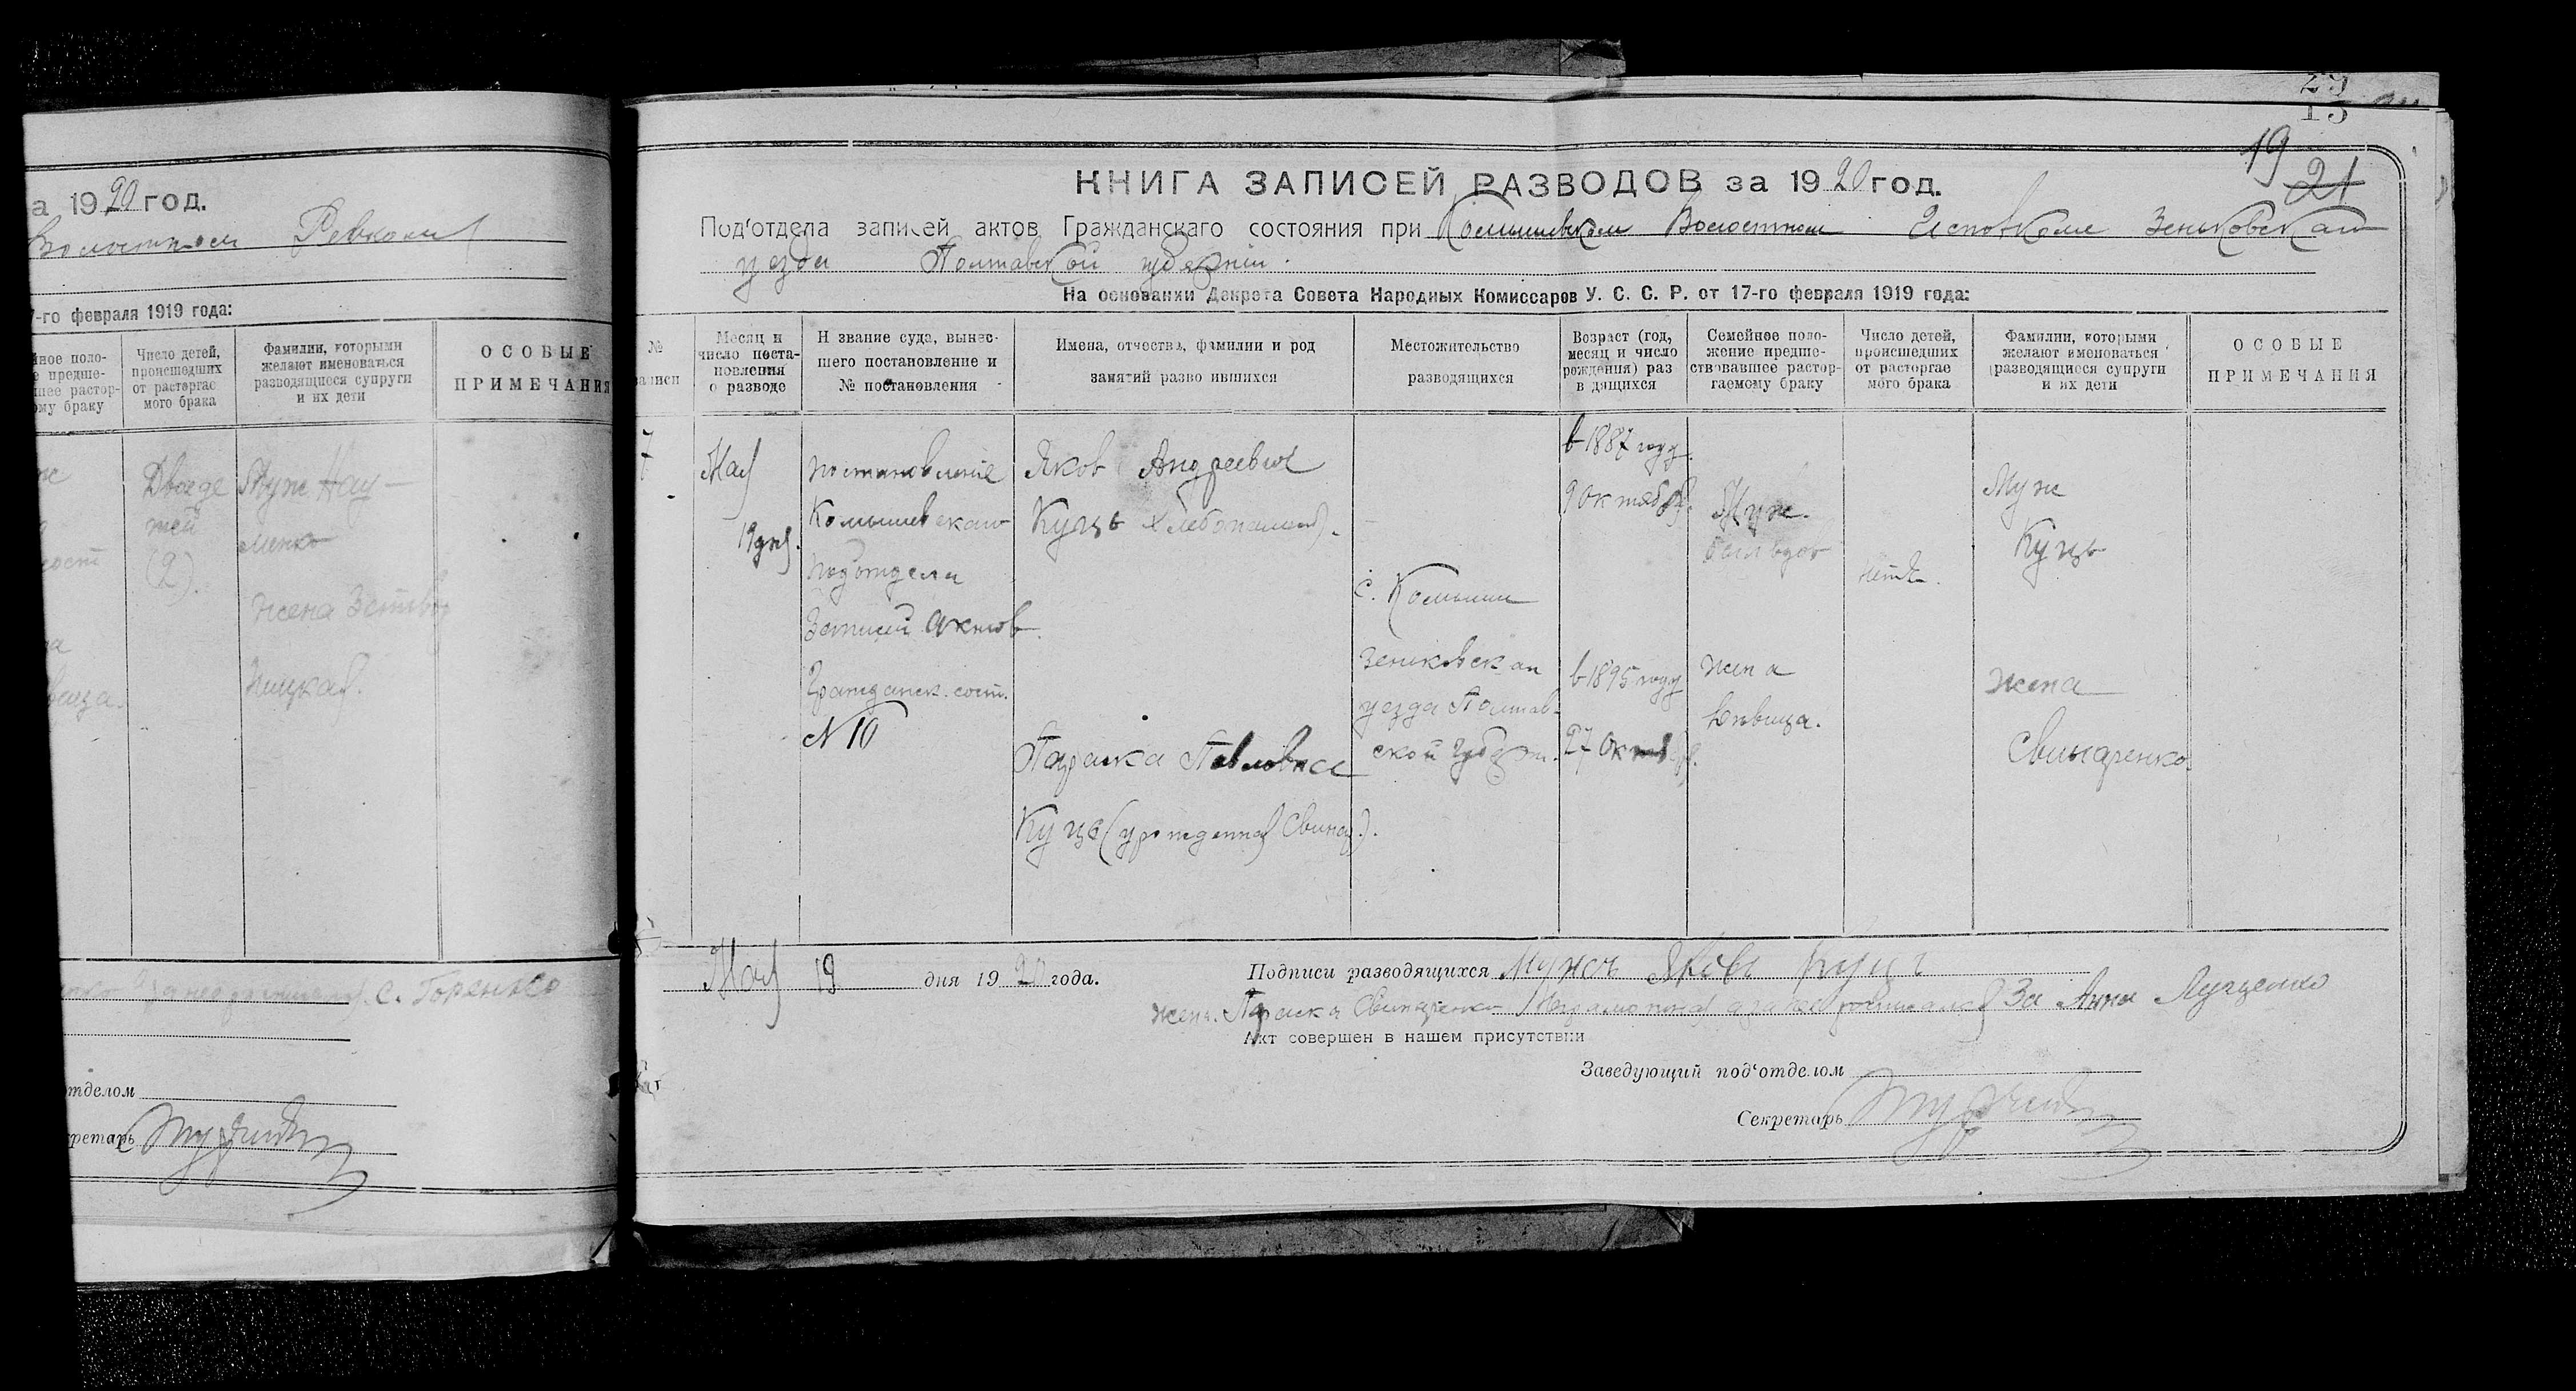 а 1920 год.
Волостном Ревкоме
7-го февраля 1919 года:
йное поло-
е предше-
шее растор-
ому браку
Число детей,
происшедших
от расторгае
мого брака
Фамилии, которыми
желают именоваться
разводящиеся супруги
и их дети
ОСОБЫЕ
ПРИМЕЧАНИЯ
Двое де
тей
(2).
Муж Нау-
менко
жена
ницкая.
С. Горенко
отделом
кретарь
23
13
19
21
КНИГА ЗАПИСЕЙ РАЗВОДОВ за 1920 год.
Под'отдела записей актов Гражданскаго состояния при Комышевском Волостном Исповкоме Зеньковскаго
уезда Полтавской губернии.
На основании Декрета Совета Народных Комиссаров У. С. С. Р. от 17-го февраля 1919 года:
№
записи
Месяц и
число поста-
новления
о разводе
Н звание суда, вынес-
шего постановление и
№ постановления
Имена, отчества, фамилии и род
занятий разво ившихся
Местожительство
разводящихся
Возраст (год,
месяц и число
рождения) раз
в дящихся
Семейное поло-
жение предше-
ствовавшее растор-
гаемому браку
Число детей,
происшедших
от расторгае
мого брака
Фамилии, которыми
желают именоваться
разводящиеся супруги
и их дети
ОСОБЫЕ
ПРИМЕЧАНИЯ
7
Мая
19 дня.
постановление
Комышевскаго
подотдела
Записей актов
Гражданск. сост.
N 10
Яков Андреевич
Куць хлебопашец.
Параска Павловна
Куць (урожденная Свинар.).
с. Комыши
Зеньковскаго
уезда Полтав-
ской губерн.
в 1887 году
9 октября.
в 1895 году
27 Октября.
Муж
был вдов
жена
девица.
нет.
Муж
Куць
жена
Свинаренко.
Мая 19 дня 1920 года.
Подписи разводящихся Мужъ Яковъ Куць
жена. Параска Свинаренко неграмотная а за нее росписалася За Анна Луценко
Акт совершен в нашем присутствии
Заведующий под'отделом
Секретарь